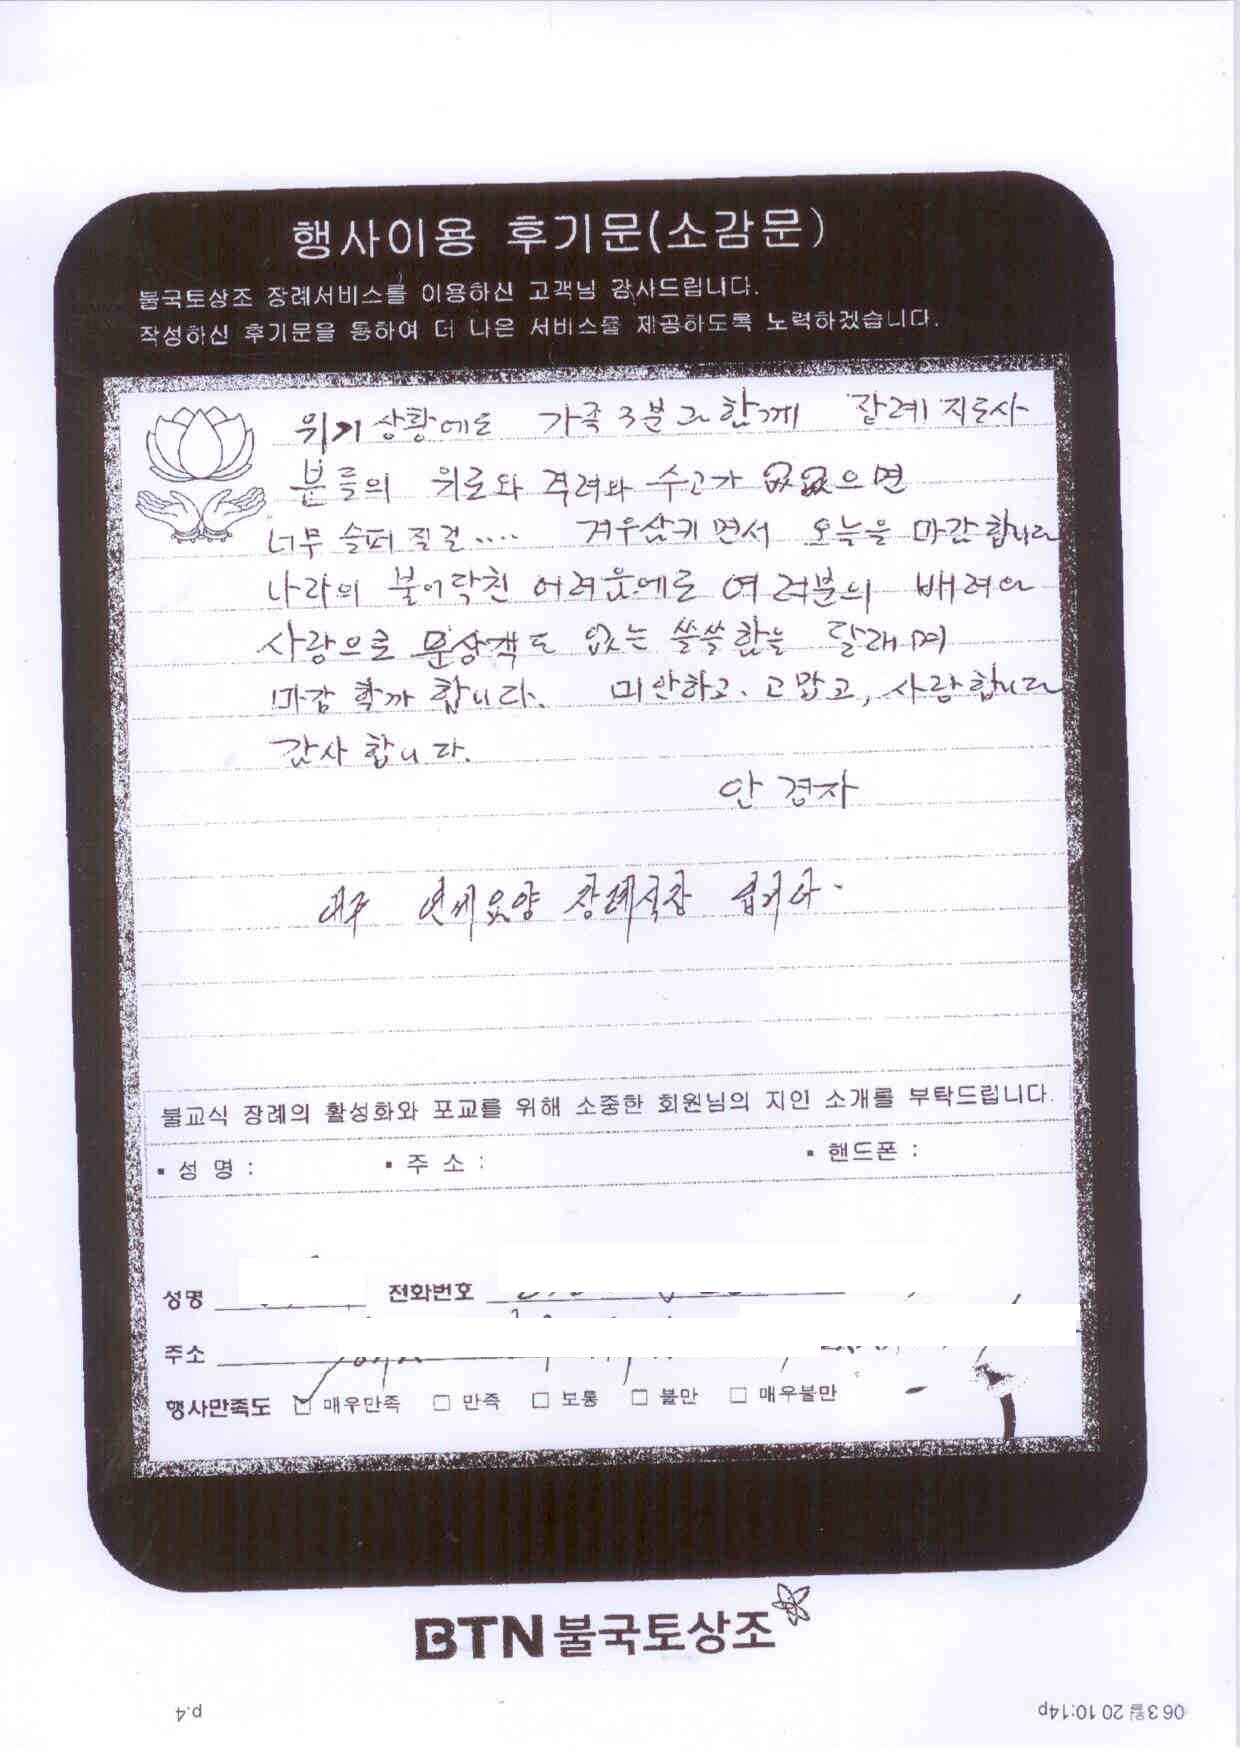 행사이용 후기문(소감문)
불국토상조 장례서비스를 이용하신 고객님 감사드립니다.
작성하신 후기문을 통하여 더 나은 서비스를 제공하도록 노력하겠습니다.
위기 상황에도 가족 3분과 함께 장례 지도사
분들의 위로와 격려와 수고가 없었으면
너무 슬퍼 질걸.... 겨우삼키면서 오늘을 마감합니다
나라의 불어닥친 어려움에도 여러분의 배려와
사랑으로 문상객도 없는 쓸쓸함을 달래며
마감 할까 합니다. 미안하고, 고맙고, 사랑합니다
감사 합니다.
안경자
연세요양 장례식장
불교식 장례의 활성화와 포교를 위해 소중한 회원님의 지인 소개를 부탁드립니다.
▪ 성 명 : ▪ 주 소 : ▪ 핸드폰 :
성명 전화번호
주소
행사만족도 ☑ 매우만족 □ 만족 □ 보통 □ 불만 □ 매우불만
BTN 불국토상조
06 3월 20 10:14p p.4